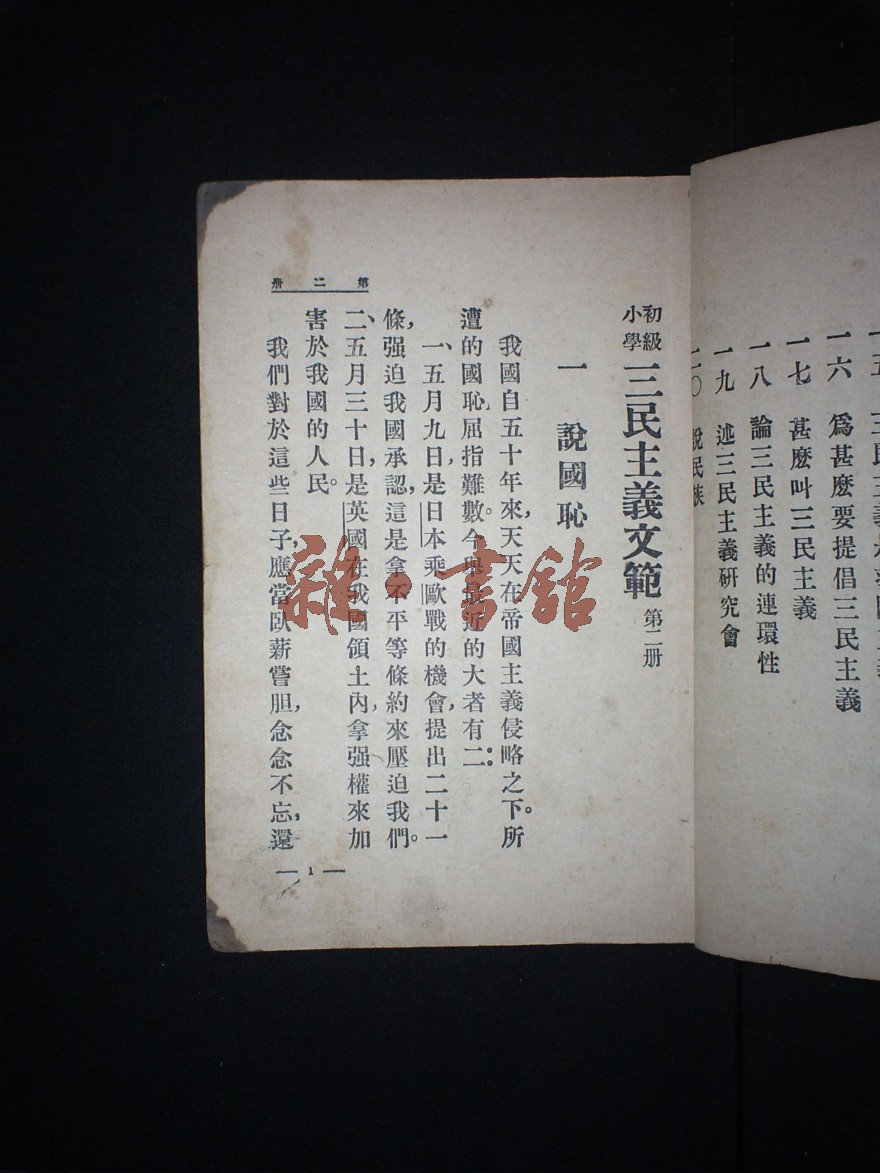 一六　爲甚麽要提倡三民主義
一七　甚麽叫三民主義
一八　論三民主義的連環性
一九　述三民主義研究會
二〇　說民族
初級
小學
三民主義文範 第二册
一　說國恥
我國自五十年來，天天在帝國主義侵略之下。所
遭的國恥，屈指難數。今 近的大者有二：
一、五月九日，是日本乘歐戰的機會，提出二十一
條，强迫我國承認，這是拿不平等條約來壓迫我們。
二、五月三十日，是英國在我國領土內，拿强權來加
害於我國的人民。
我們對於這些日子，應當臥薪嘗胆，念念不忘，還
第二册
— 1 —
雜·書館